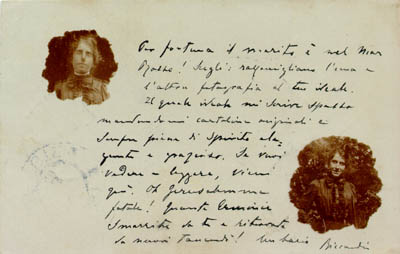 Per fortuna il marito è nel Mar
Rosso! Scegli: rassomigliano l'una e
l'altra fotografia al tuo ideale.
Il quale ideale mi scrive spesso
mandandomi cartoline originali e
sempre piene di spirito ele-
gante e grazioso. Se vuoi
vedere e leggere, vieni
qua. Oh Gerusalemme
fatale! Quante
smarrite da te e ritrovate
da
Un bacio